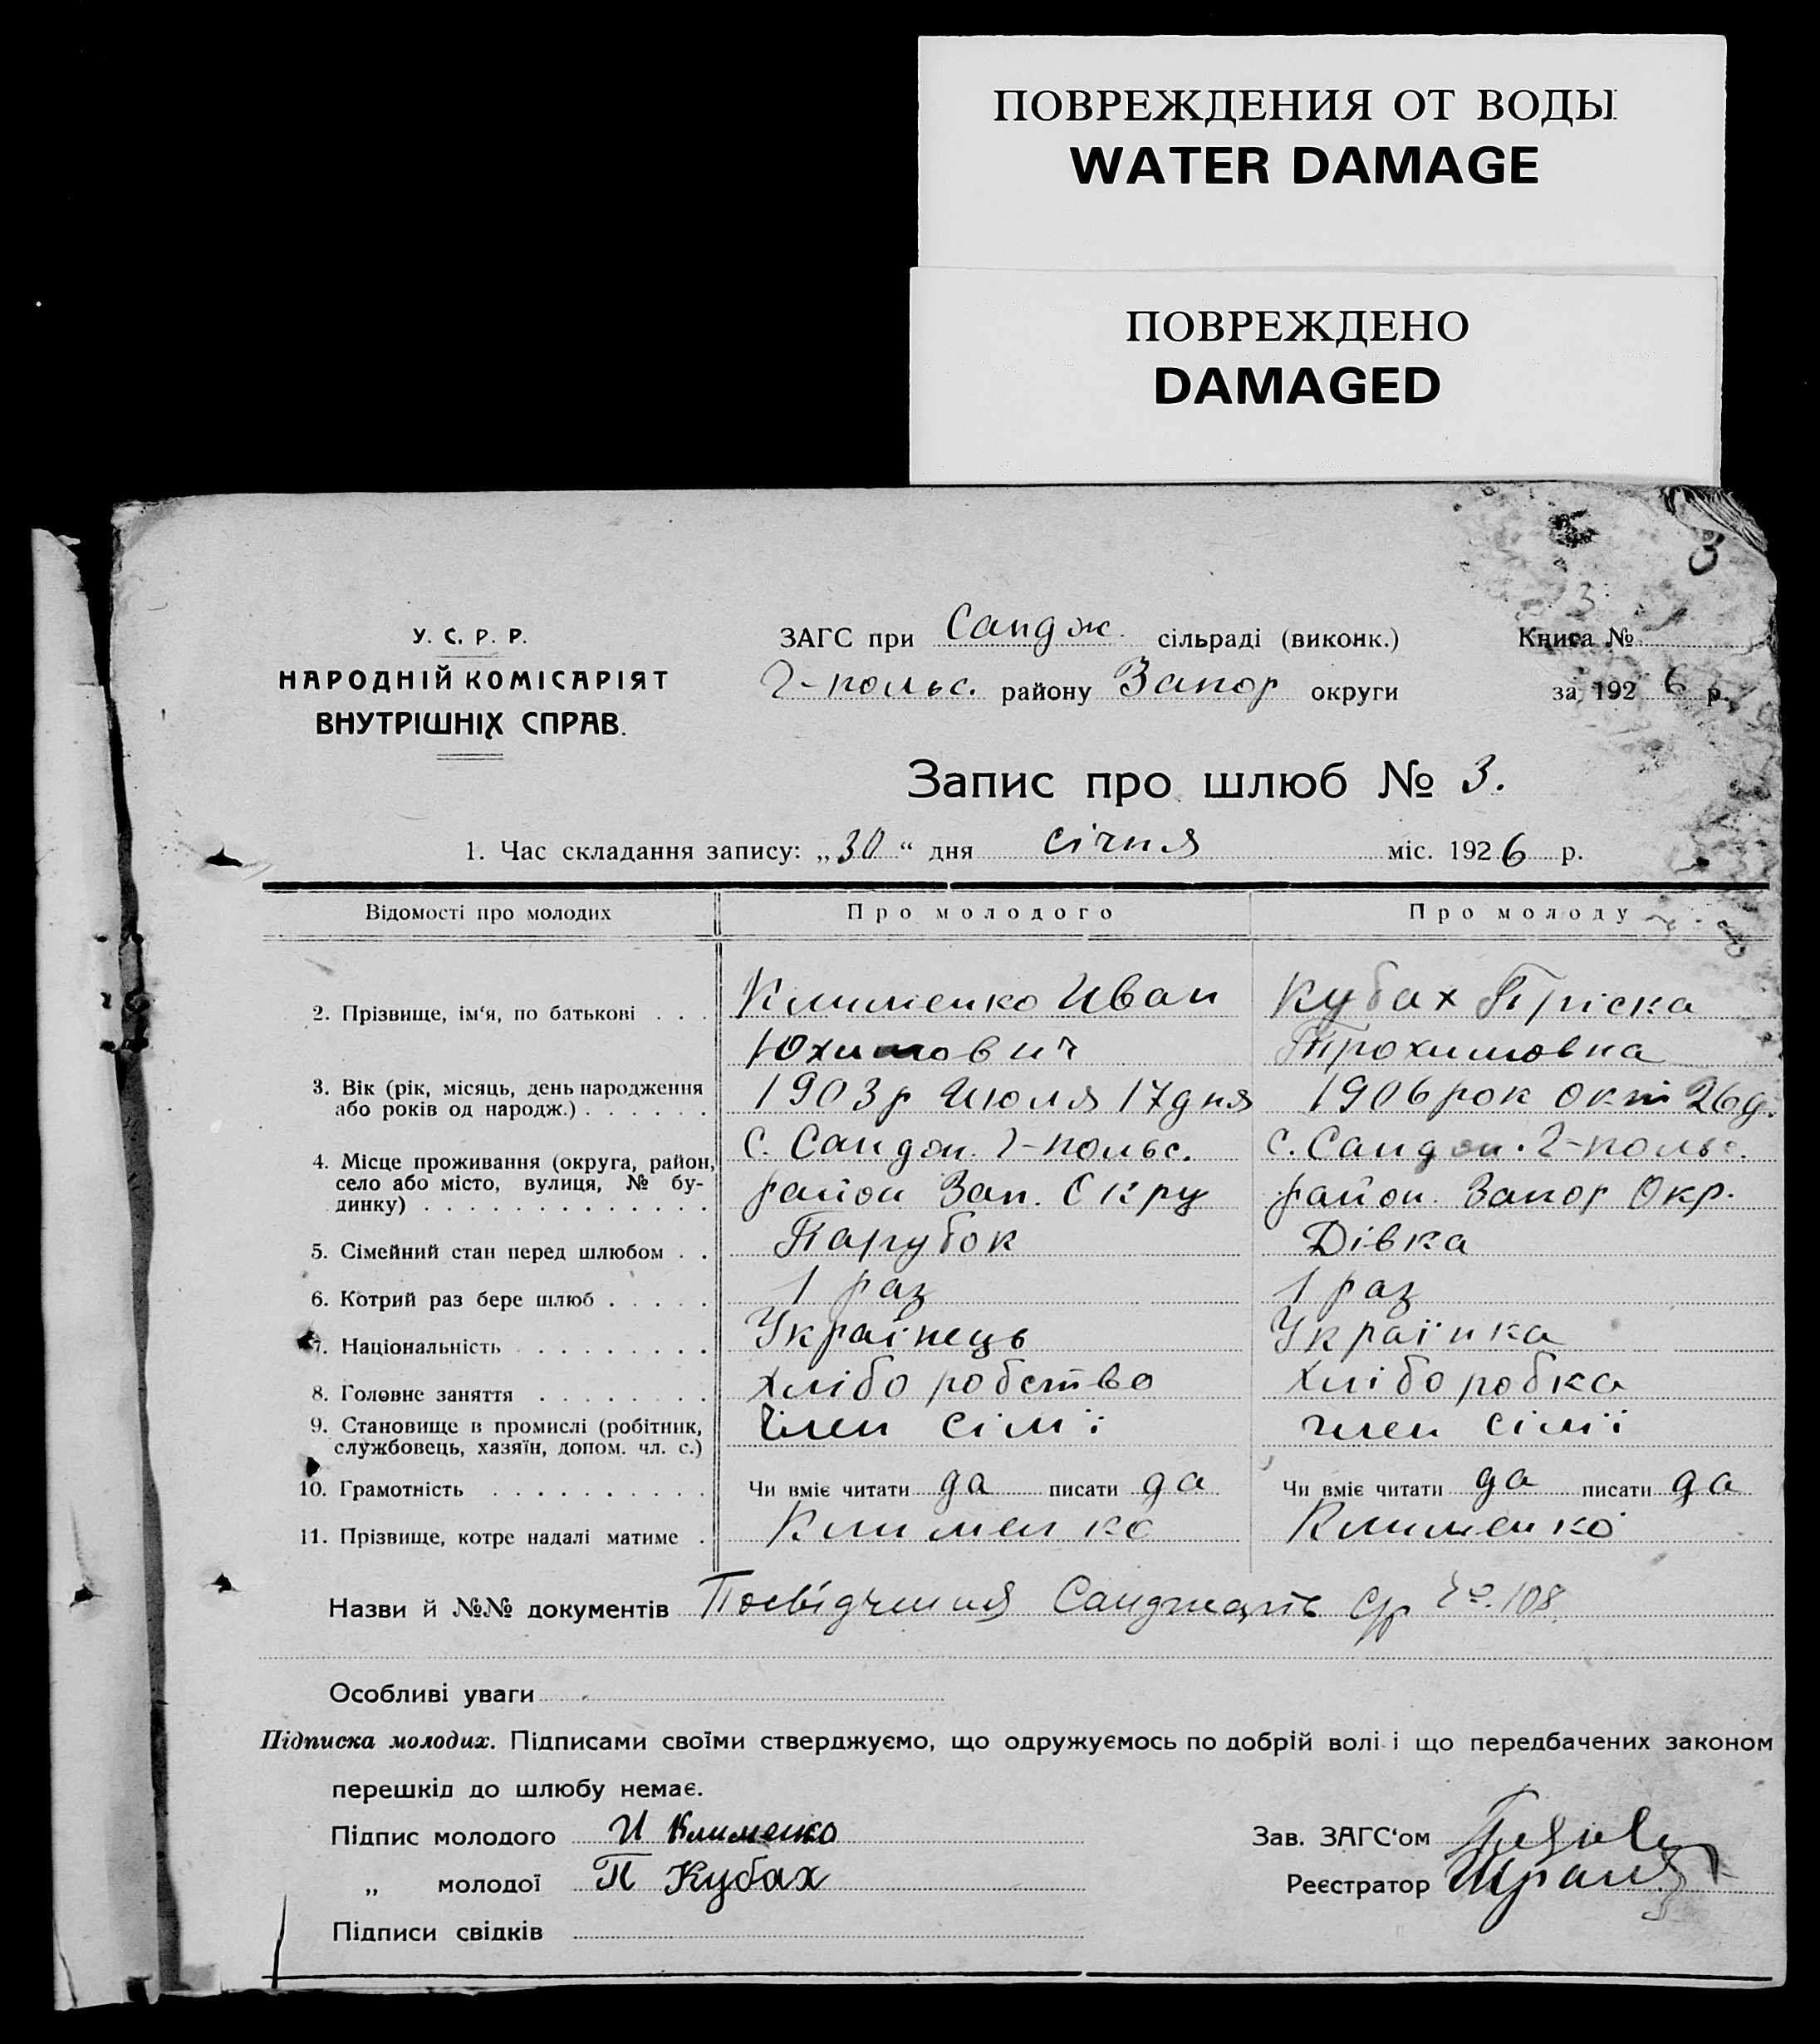 ПОВРЕЖДЕНИЯ ОТ ВОДЫ
WATER DAMAGE
ПОВРЕЖДЕНО
DAMAGED
3
3
У. С. Р. Р.
НАРОДНІЙ КОМІСАРІЯТ
ВНУТРІШНІХ СПРАВ.
ЗАГС при Сандж. сільраді (виконк.)
Г-польс. району Запор округи
Книга №
за 1926 р.
Запис про шлюб № 3.
1. Час складання запису: „30“ дня січня міс. 1926 р.
Відомості про молодих Про молодого Про молоду
2. Прізвище, ім‘я, по батькові . . . Клименко Иван Кубах Пріска
Юхимович Трохимовна
3. Вік (рік, місяць, день народження
або років од народж.) . . . . . . 1903р Июля 17дня 1906 рок Окт 26д.
4. Місце проживання (округа, район, с. Сандж. Г-польс. с. Сандж. Г-польс.
село або місто, вулиця, № бу-
динку) . . . . . . . . . . . . . район Зап. Окру район. Запор Окр.
5. Сімейний стан перед шлюбом . . Парубок Дівка
6. Котрий раз бере шлюб . . . . . 1 раз 1 раз
7. Національність . . . . . . . . . Українець Українка
8. Головне заняття . . . . . . . . Хліборобство Хліборобка
9. Становище в промислі (робітник,
службовець, хазяїн, допом. чл. с.) Член сімї член сімії
10. Грамотність . . . . . . . . . . Чи вміє читати да писати да Чи вміє читати да писати да
11. Прізвище, котре надалі матиме . Клименко Клименко
Назви й №№ документів Посвідчення Санджарів с/р 108.
Особливі уваги
Підписка молодих. Підписами своїми стверджуємо, що одружуємось по добрій волі і що передбачених законом
перешкід до шлюбу немає.
Підпис молодого И Клименко Зав. ЗАГС‘ом
„ молодої П Кубах Реєстратор
Підписи свідків